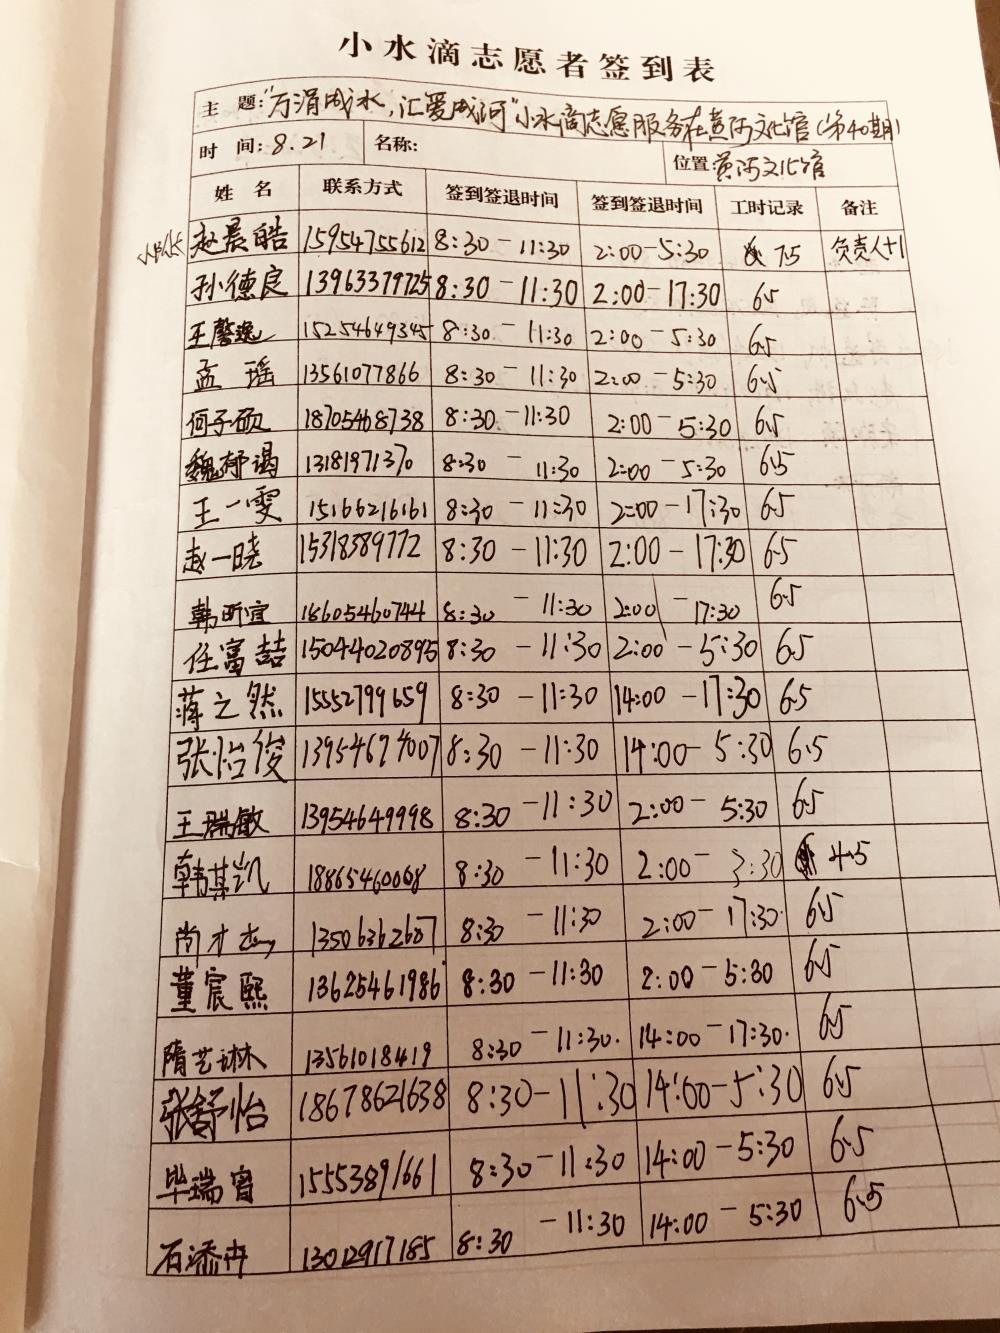 小水滴志愿者签到表
主 题:"万涓成水,汇爱成河"小水滴志愿服务在黄河文化馆(第40期)
时 间:8.21 名称: 位置:黄河文化馆
姓 名 联系方式 签到签退时间 签到签退时间 工时记录 备注
赵晨皓 15954755612 8:30-11:30 2:00-5:30 7.5 负责人+1
孙德良 13963379725 8:30-11:30 2:00-17:30 6.5
王馨逸 15254649345 8:30-11:30 2:00-5:30 6.5
孟瑶 13561077866 8:30-11:30 2:00-5:30 6.5
何子硕 18705468738 8:30-11:30 2:00-5:30 6.5
13181971370 8:30-11:30 2:00-5:30 6.5
王一雯 15166216161 8:30-11:30 2:00-17:30 6.5
赵一晓 15318389772 8:30-11:30 2:00-17:30 6.5
韩昕宜 18605460744 8:30-11:30 2:00-17:30 6.5
任富喆 15044020895 8:30-11:30 2:00-5:30 6.5
蒋之然 15552799659 8:30-11:30 14:00-17:30 6.5
张怡俊 13954674007 8:30-11:30 14:00-5:30 6.5
王瑞敏 13954649998 8:30-11:30 2:00-5:30 6.5
韩某凯 18865460068 8:30-11:30 2:00-3:30 4.5
尚才杰 13506362687 8:30-11:30 2:00-17:30 6.5
董宸熙 13625461986 8:30-11:30 2:00-5:30 6.5
隋艺琳 13561018419 8:30-11:30 14:00-17:30 6.5
张舒怡 18678621638 8:30-11:30 14:00-5:30 6.5
毕瑞宵 15553891661 8:30-11:30 14:00-5:30 6.5
石添卉 13012917185 8:30-11:30 14:00-5:30 6.5